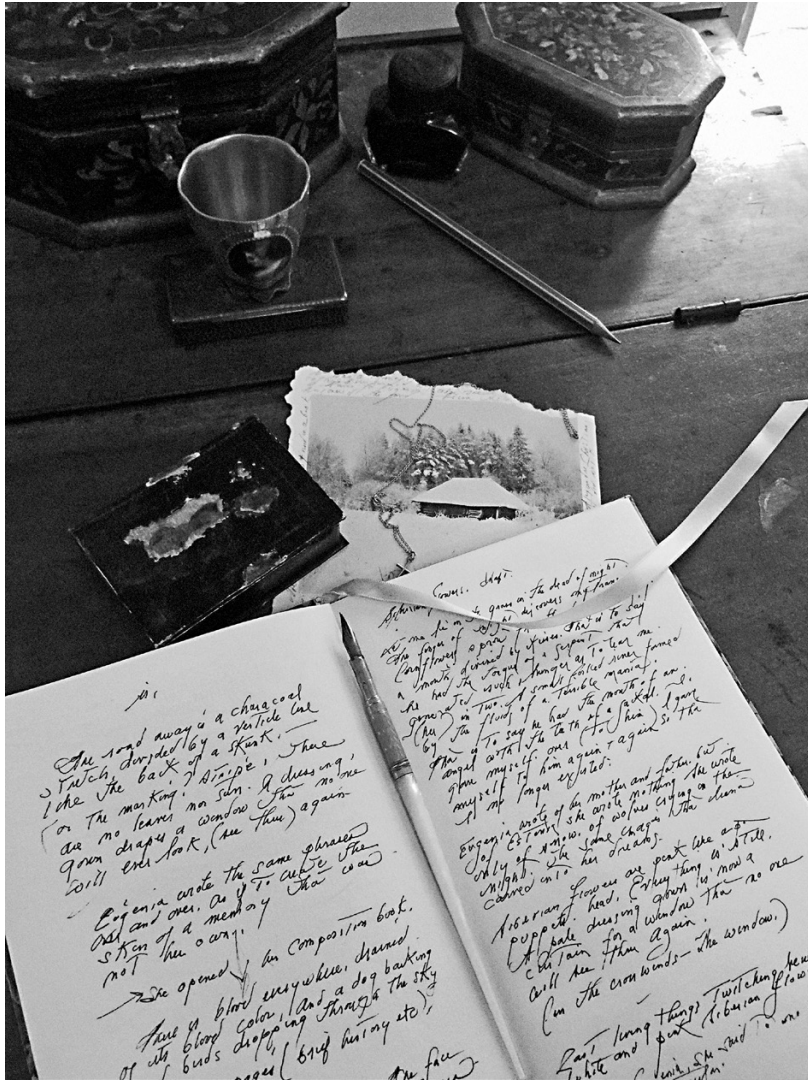 The road away is a charcoal
stretch, divided by a verticle line
like the back of a skunk.
(or the marking) stripe, There
are no leaves nor sun. A dressing
gown drapes a window that no one
will ever look, (see thru) again
Evgenia wrote the same phrases
over and over, as if to create the
skin of a memory that was
not her own.
She opened her composition book.
There is blood everywhere, drained
of its blood color, and a dog barking
and birds dropping through the sky
pages (brief history etc),
The face
Siberian Flowers. draft.
No one knew he goes in the dead of night
cornflowers
a mouth, divided by That is to say
he had the tongue of a serpent that
generated such hunger as to tear me
(her) in two. A small coiled river formed
by the fluids of a terrible mania.
That is to say he had the mouth of an
angel with the teeth of a jackal. I
gave myself over (to him) I gave
myself to him again + again so that
I no longer existed.
Evgenia wrote of her mother and father. but
of Estonia she wrote nothing. She wrote
only of snow, of wolves crying in the
night. The same images that
carved into her dreams.
Siberian flowers are pink like a
puppets head. Everything is still.
(A pale dressing gown is now a
curtain for a window that no one
will see thru again.
(in the crosswinds – the window.)
Last living things twitching here
white and pink Siberian flow
she said to no one